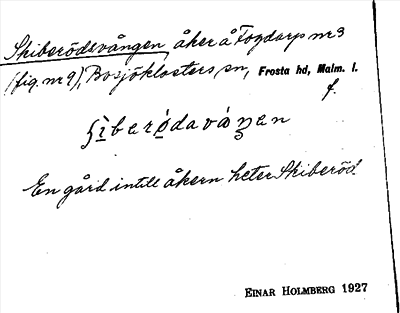 Skiberödsvången, åker å Fogdarp nr 3
(fig. nr 9), Bosjöklosters sn, Frosta hd, Malm. l.
f.
ʃìberò̱davåŋen
En gård intill åkern heter Skiberöd.
EINAR HOLMBERG 1927